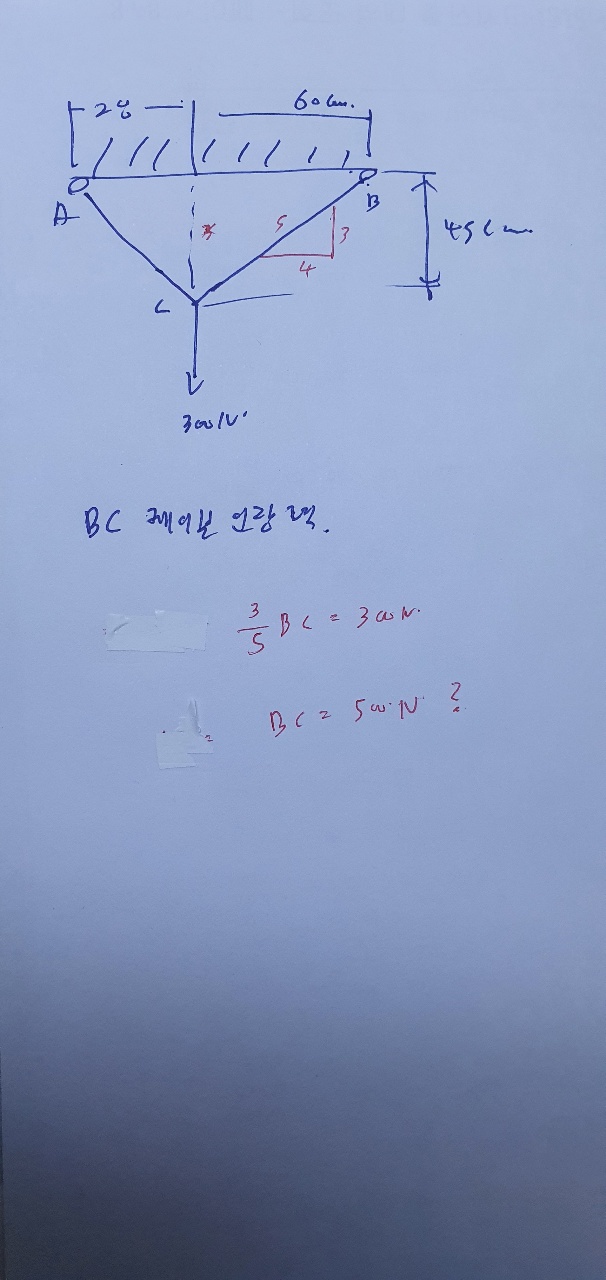 60cm.
A
B
5
3
4
45cm
C
300N
BC 케이블 인장력.
3/5 BC = 300N.
BC = 500N ?